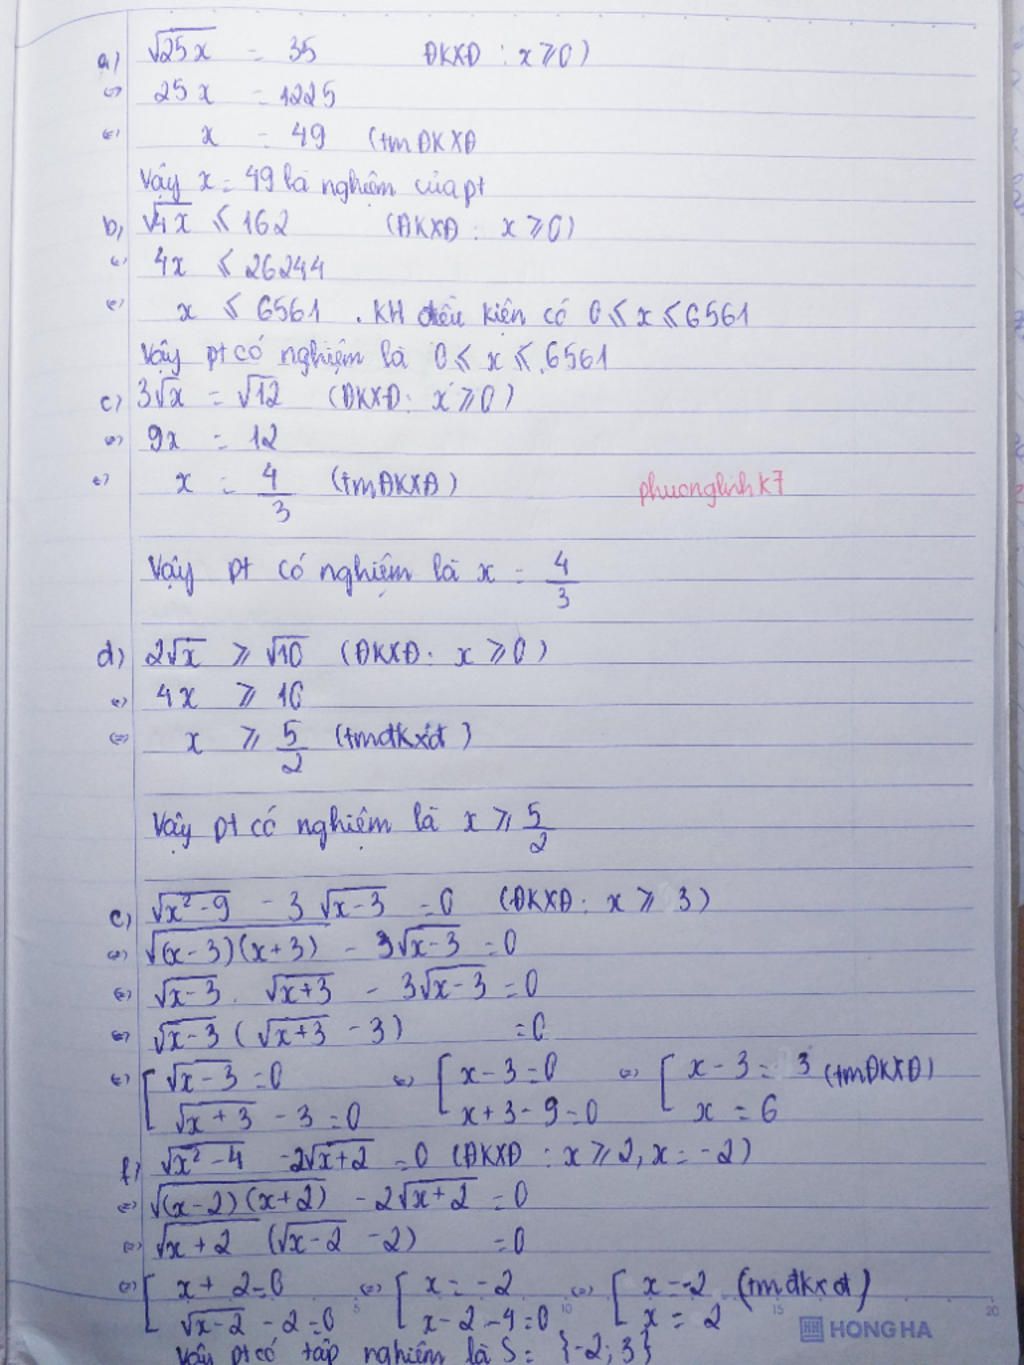 a) √25x = 35 ĐKXĐ : x ⩾ 0)
⇔ 25x = 1225
⇔ x = 49 (tmĐKXĐ
Vậy x = 49 là nghiệm của pt
b, √4x ⩽ 162 (ĐKXĐ : x ⩾ 0)
⇔ 4x ⩽ 26244
⇔ x ⩽ 6561 . KH điều kiện có 0 ⩽ x ⩽ 6561
Vậy pt có nghiệm là 0 ⩽ x ⩽ 6561
c) 3√x = √12 (ĐKXĐ: x ⩾ 0)
⇔ 9x = 12
⇔ x = 4/3 (tmĐKXĐ)
phuonglinhk7
Vậy pt có nghiệm là x = 4/3
d) 2√x ⩾ √10 (ĐKXĐ: x ⩾ 0)
⇔ 4x ⩾ 10
⇔ x ⩾ 5/2 (tmđkxđ)
Vậy pt có nghiệm là x ⩾ 5/2
e) √x²-9 - 3√x-3 = 0 (ĐKXĐ: x ⩾ 3)
⇔ √(x-3)(x+3) - 3√x-3 = 0
⇔ √x-3 . √x+3 - 3√x-3 = 0
⇔ √x-3 (√x+3 - 3) = 0
⇔ [ √x-3 = 0 ⇔ [ x-3=0 ⇔ [ x-3= 3 (tmĐKXĐ)
√x+3 - 3 = 0 x+3-9=0 x = 6
f) √x²-4 -2√x+2 = 0 (ĐKXĐ : x ⩾ 2, x = -2)
⇔ √(x-2)(x+2) - 2√x+2 = 0
⇔ √x+2 (√x-2 -2) = 0
⇔ [ x+2=0 ⇔ [ x = -2 ⇔ [ x=-2 (tmđkxđ)
√x-2 - 2=0 x-2-4=0 x = 2
5 10 15 20
HONG HA
Vậy pt có tập nghiệm là S = {-2; 3}